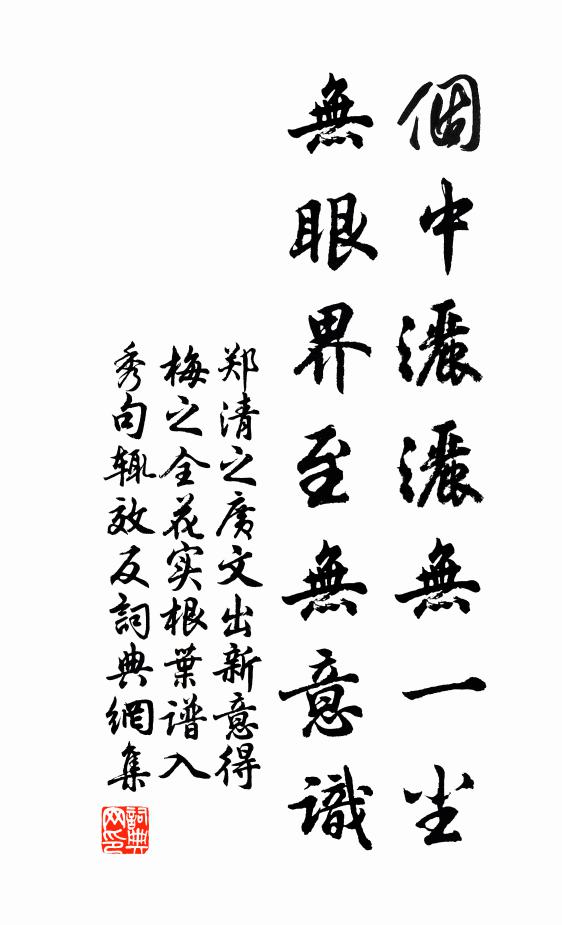 個中灑灑無一尘
無眼界至無意識
郑清之廣文出新意得
梅之全花实根葉谱入
秀句辄效反詞典網集
詞典
网印